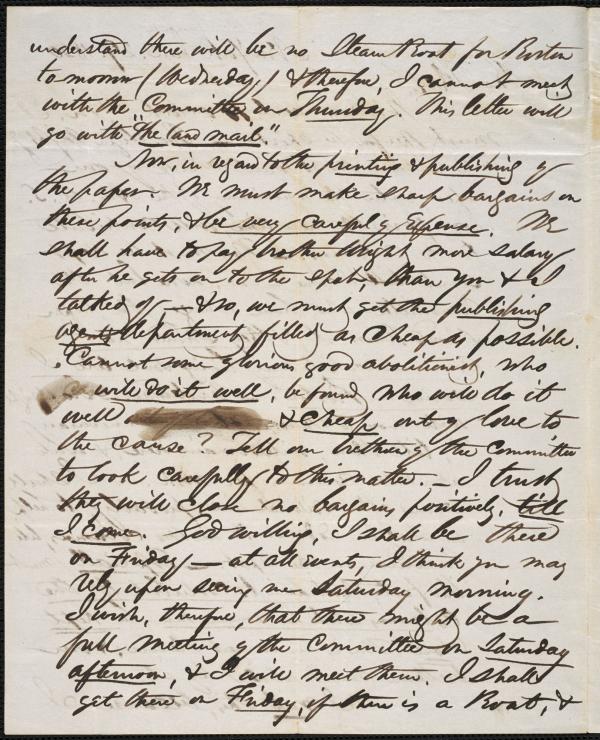 understand there will be no Steam Boat for Boston
tomorrow (Wednesday) & therefore, I cannot meet
with the Committee on Thursday. This letter will
go with "the land mail".
Now, in regard to the printing & publishing of
the paper. We must make sharp bargains on
these points, & be very careful of Expense. We
shall have to pay brother Wright more salary
after he gets on to the spot, than you & I
talked of — & so, we must get the publishing
agents department filled as cheap as possible.
Cannot some glorious good abolitionist, who
will do it well, be found who will do it
well & cheap out of love to
the cause? Tell our brethren of the Committee
to look carefully to this matter. — I trust
they will close no bargains positively, till
I come. God willing, I shall be there
on Friday — at all events, I think you may
rely upon seeing me Saturday morning.
I wish, therefore, that there might be a
full meeting of the Committee on Saturday
afternoon, & I will meet them. I shall
get there on Friday, if there is a Boat, &